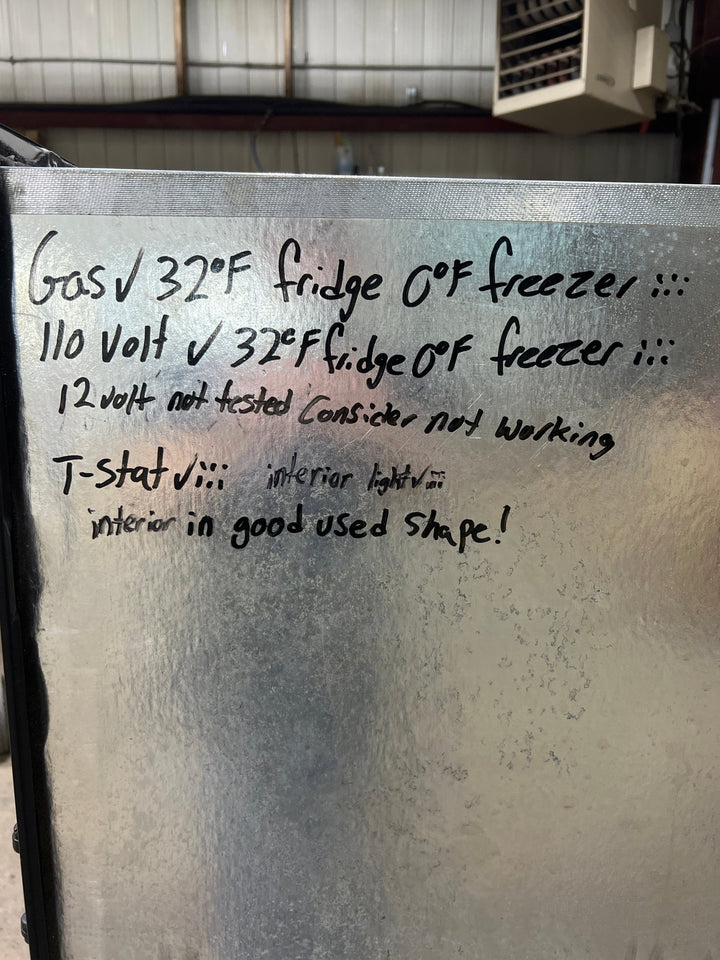 Gas ✓ 32°F fridge 0°F freezer :::
110 Volt ✓ 32°F fridge 0°F freezer :::
12 volt not tested Consider not working
T-Stat ✓ ::: interior light ✓ :::
interior in good used shape!